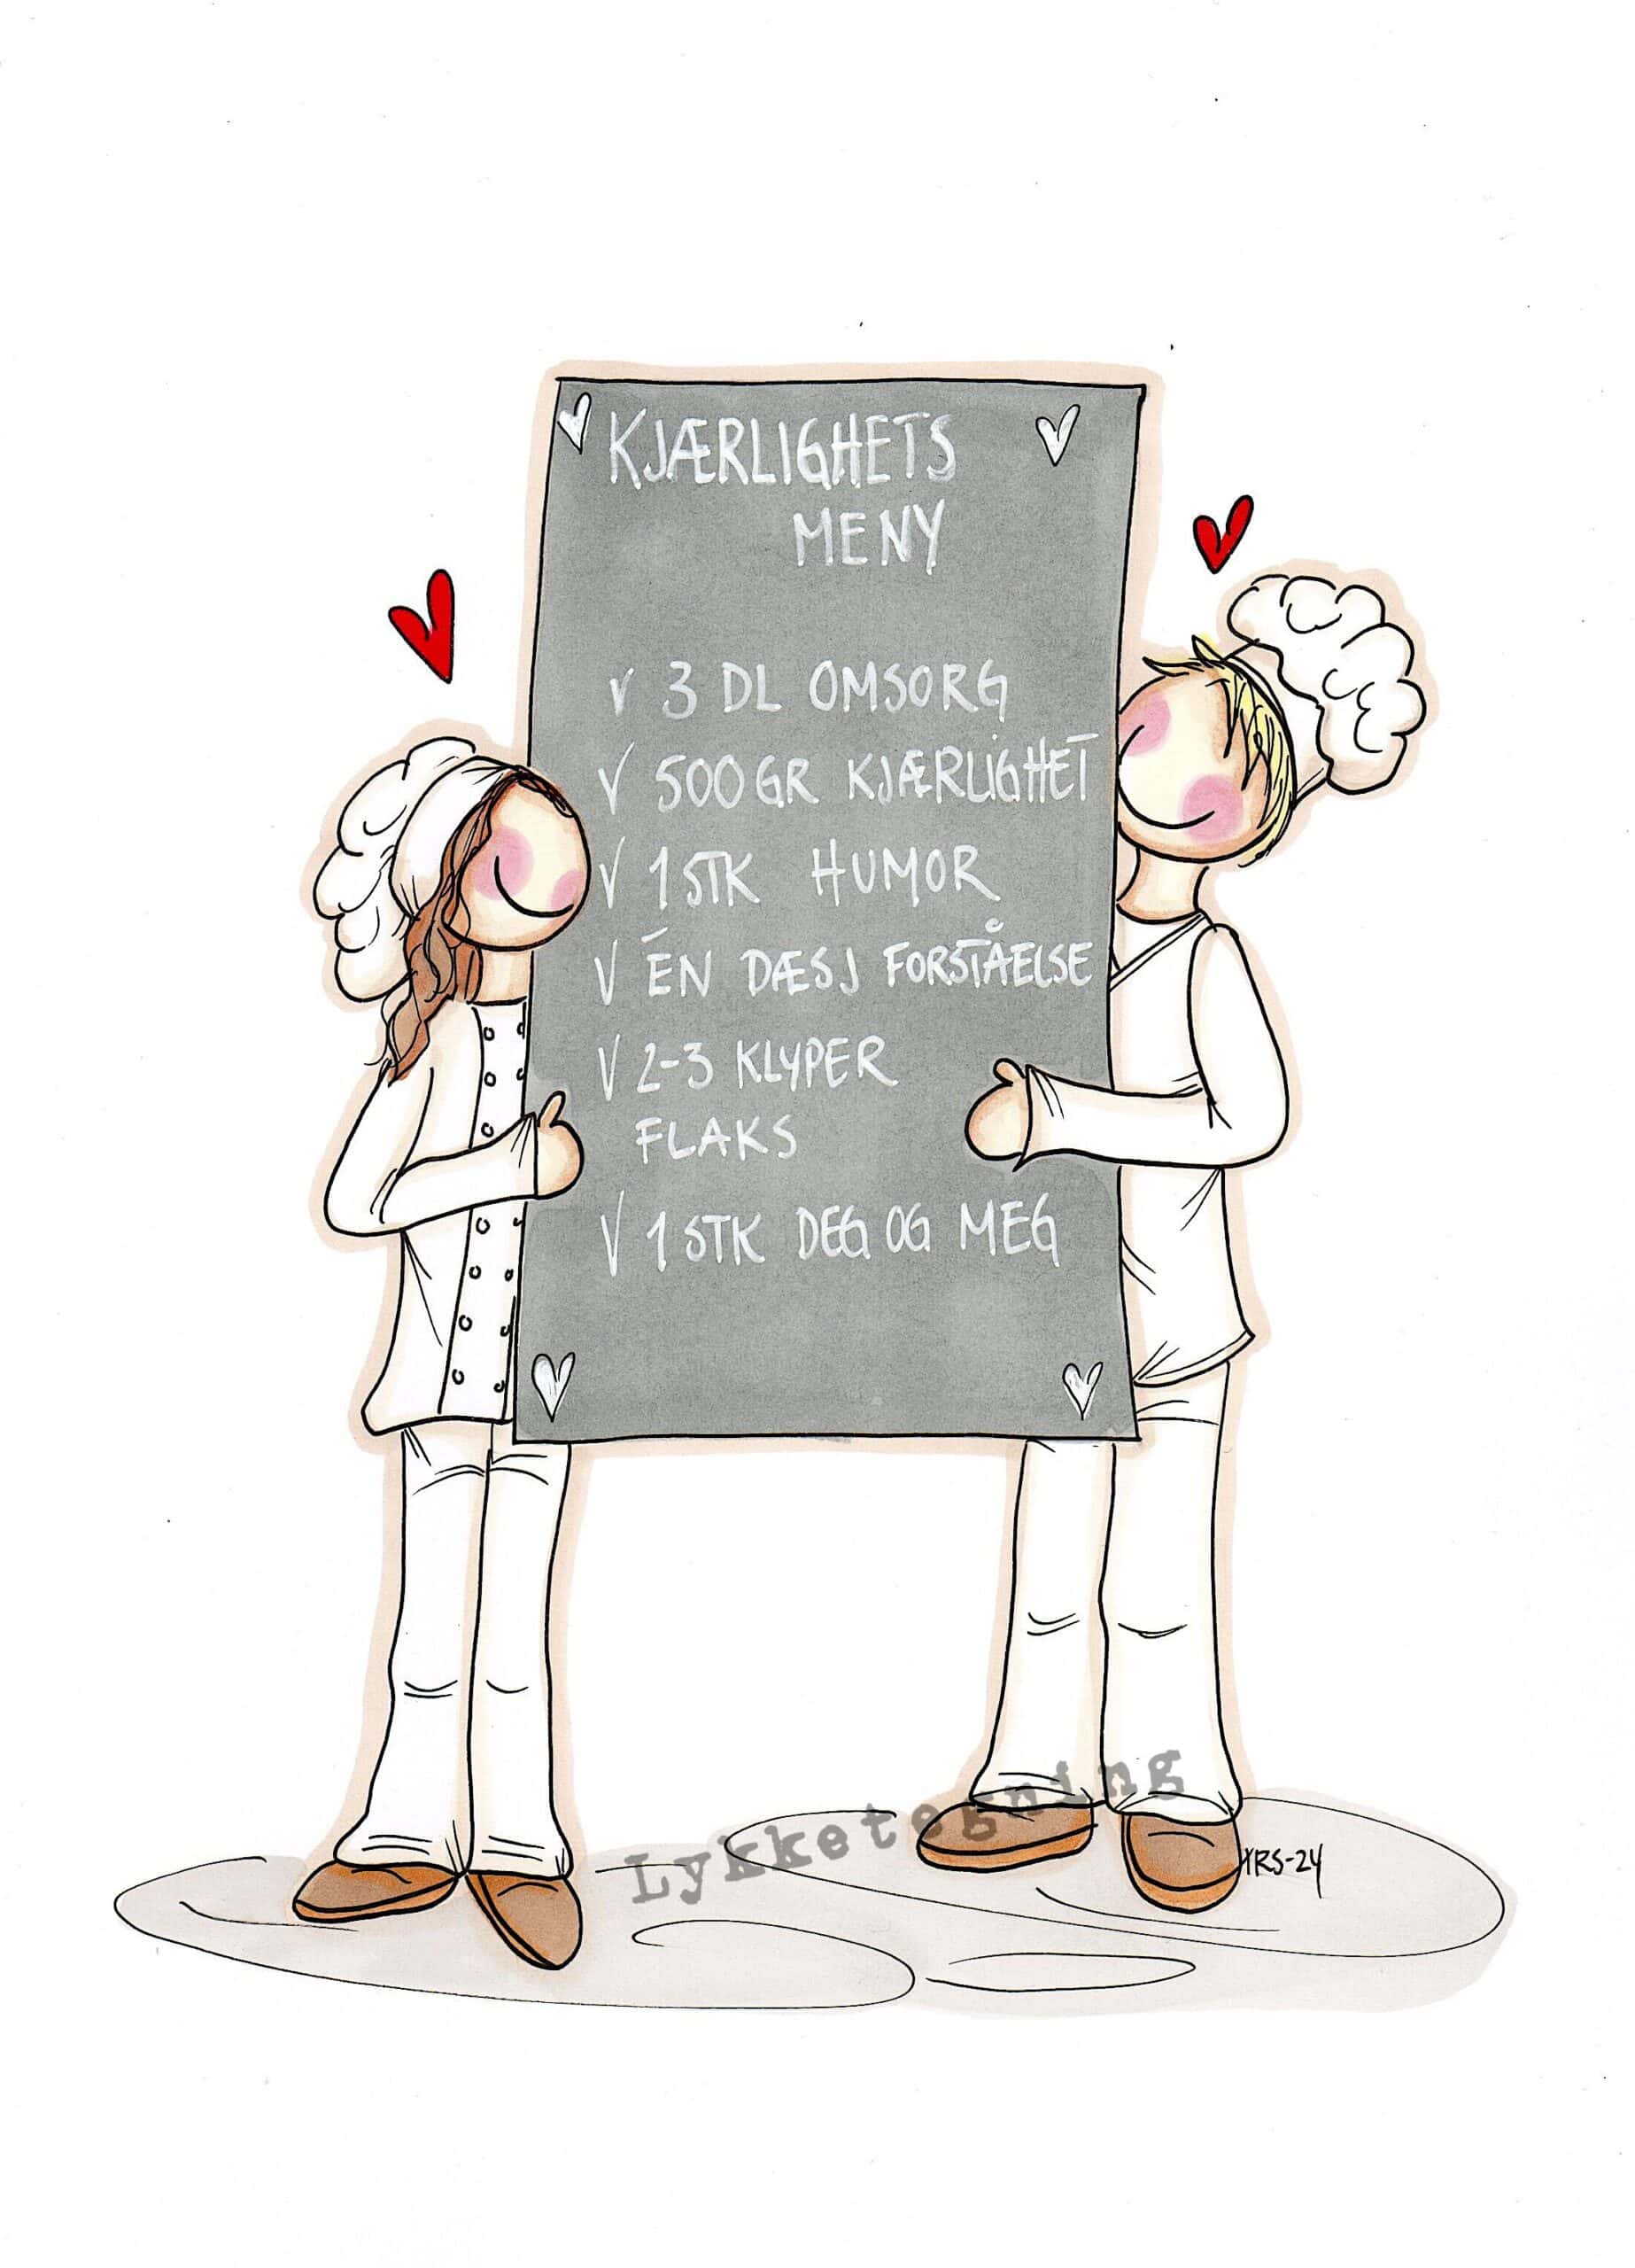 KJÆRLIGHETS
MENY
√ 3 DL OMSORG
√ 500GR KJÆRLIGHET
√ 1 STK HUMOR
√ ÉN DÆSJ FORSTÅELSE
√ 2-3 KLYPER
FLAKS
√ 1 STK DEG OG MEG
Lykketegning